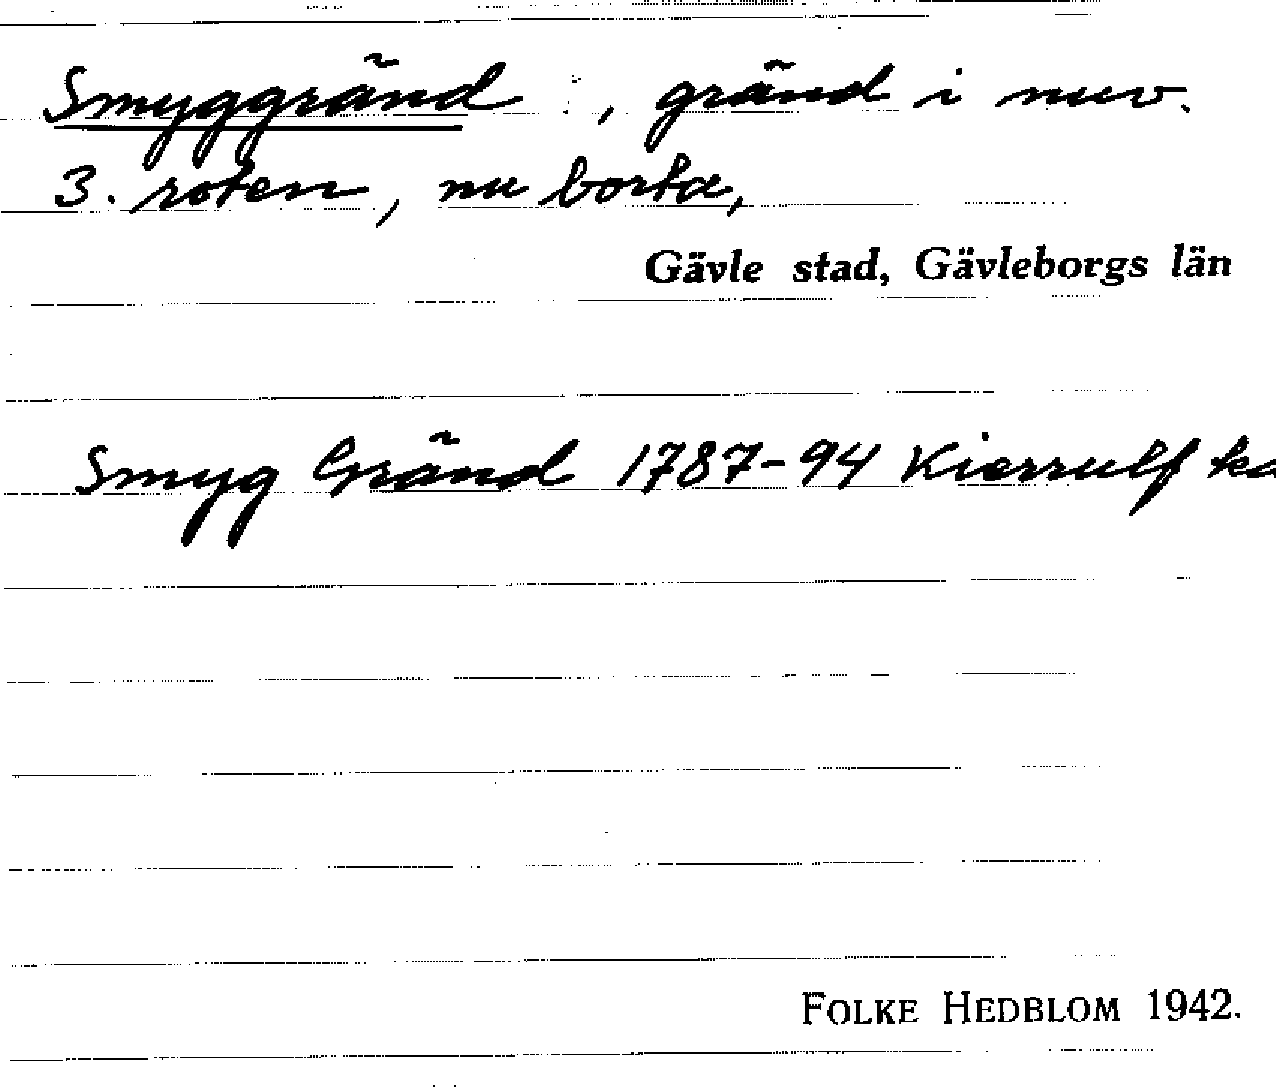 Smyggränd, gränd i nuv.
3. roten, nu borta,
Gävle stad, Gävleborgs län
Smyg Gränd 1787-94 Kierrulf ka
FOLKE HEDBLOM 1942.